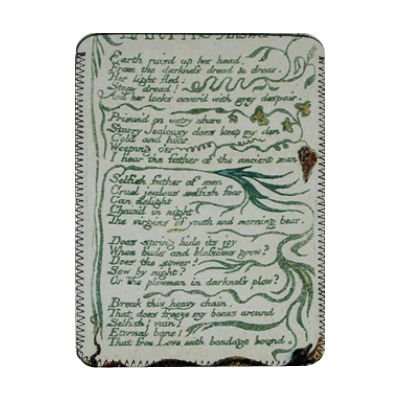 EARTH'S Answer
Earth rais'd up her head,
From the darkness dread & drear.
Her light fled:
Stony dread!
And her locks cover'd with grey despair.
Prison'd on watry shore
Starry Jealousy does keep my den
Cold and hoar
Weeping o'er
I hear the father of the ancient men
Selfish father of men
Cruel jealous selfish fear
Can delight
Chain'd in night
The virgins of youth and morning bear.
Does spring hide its joy
When buds and blossoms grow?
Does the sower?
Sow by night?
Or the plowman in darkness plow?
Break this heavy chain.
That does freeze my bones around
Selfish! vain!
Eternal bane!
That free Love with bondage bound.